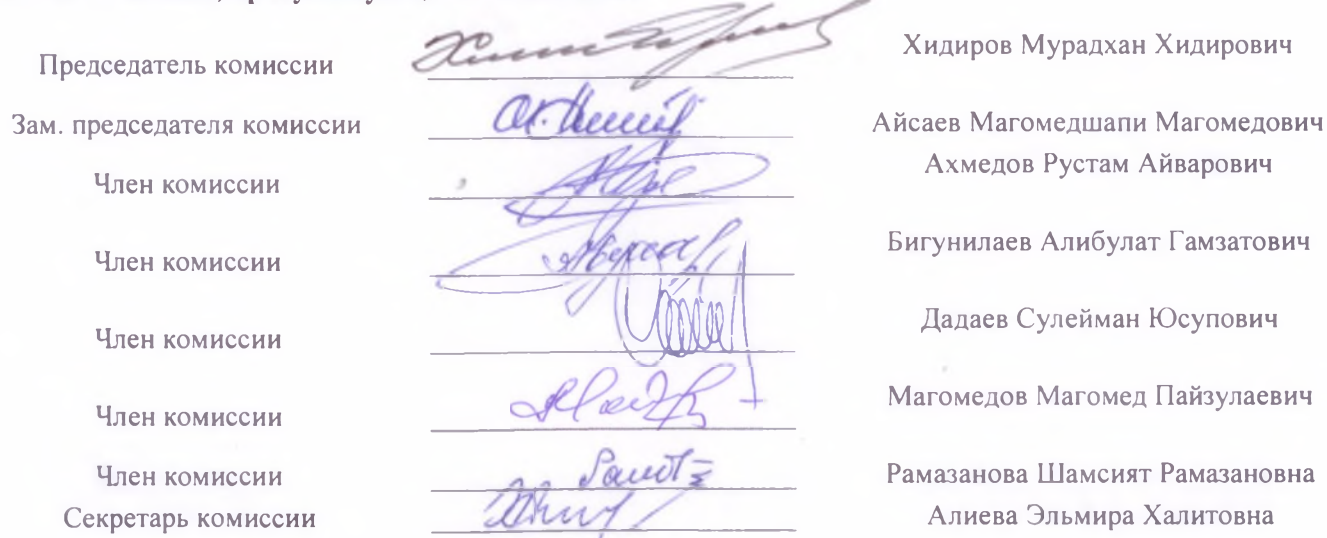 Председатель комиссии Хидиров Мурадхан Хидирович
Зам. председателя комиссии Айсаев Магомедшапи Магомедович
Член комиссии Ахмедов Рустам Айварович
Член комиссии Бигунилаев Алибулат Гамзатович
Член комиссии Дадаев Сулейман Юсупович
Член комиссии Магомедов Магомед Пайзулаевич
Член комиссии Рамазанова Шамсият Рамазановна
Секретарь комиссии Алиева Эльмира Халитовна